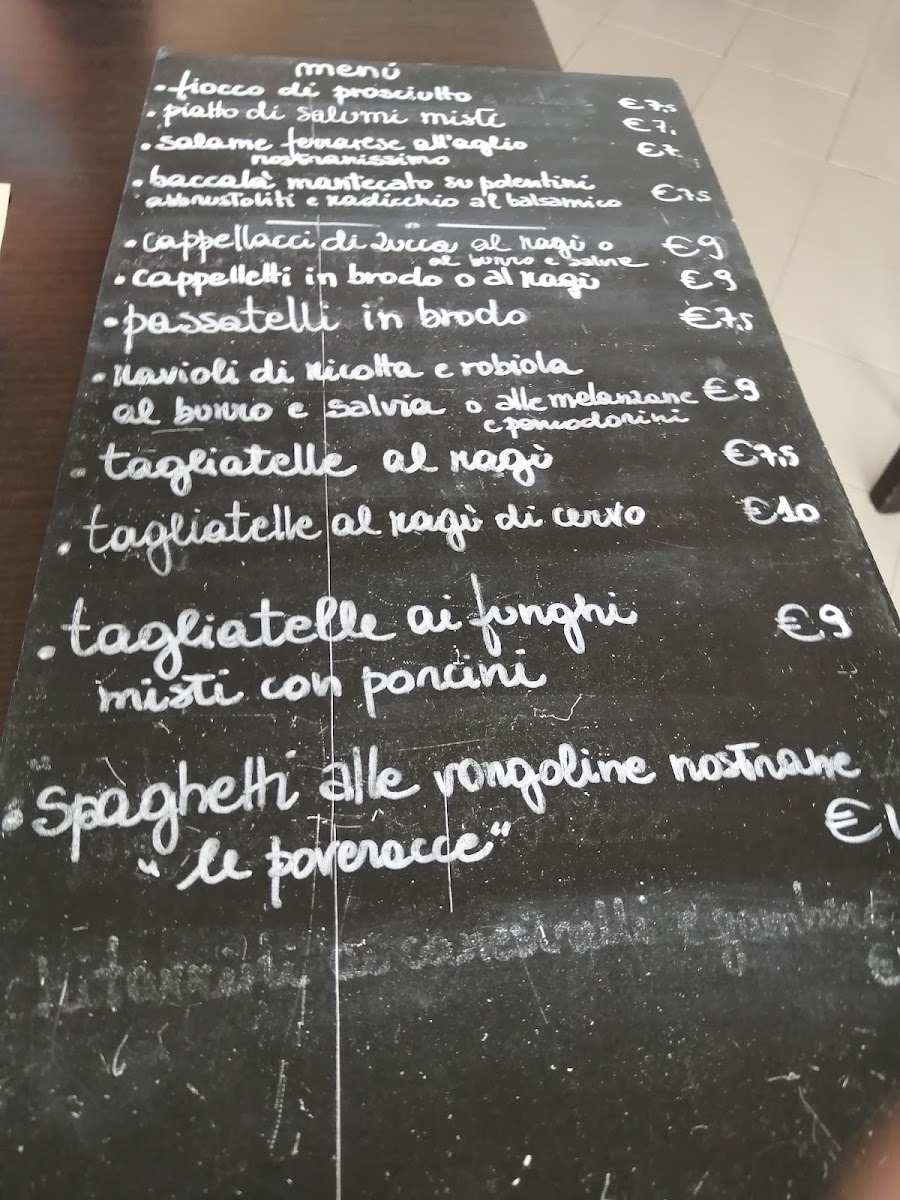 menú
• fiocco di prosciutto €7,5
• piatto di salumi misti €7,
• salame ferrarese all'aglio €7
nostranissimo
• baccalà mantecato su polentini €7,5
abbrustoliti e radicchio al balsamico
• cappellacci di zucca al ragù o €9
al burro e salvie
• cappelletti in brodo o al ragù €9
• passatelli in brodo €7,5
• ravioli di ricotta e robiola
al burro e salvia o alle melanzane €9
e pomodorini
• tagliatelle al ragù €7,5
• tagliatelle al ragù di cervo €10
• tagliatelle ai funghi €9
misti con porcini
• spaghetti alle vongoline nostrane
"le poveracce" €1